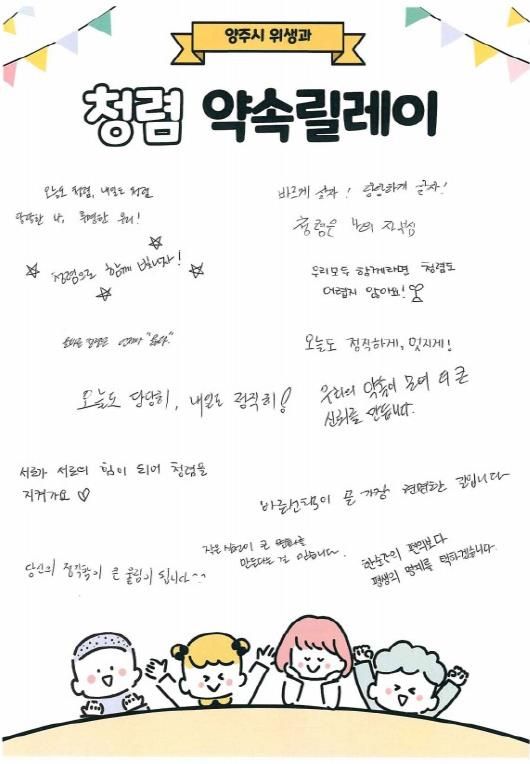 양주시 위생과
청렴 약속릴레이
오늘도 청렴, 내일도 청렴
당당한 나, 투명한 우리!
바르게 살자! 당당하게 살자!
청렴은 나의 자부심
청렴으로 함께 빛나자!
우리모두 함께라면 청렴도
어렵지 않아요!
청렴은 언제나 "옳다."
오늘도 정직하게, 멋지게!
오늘도 당당히, 내일도 정직히!
우리의 약속이 모여 더 큰
신뢰를 만듭니다.
서로가 서로의 힘이 되어 청렴을
지켜가요 ♡
바른선택이 곧 가장 현명한 길입니다
작은 실천이 큰 변화를
만든다는 걸 믿습니다.
한순간의 편의보다
평생의 명예를 택하겠습니다.
당신의 정직함이 큰 울림이 됩니다^^